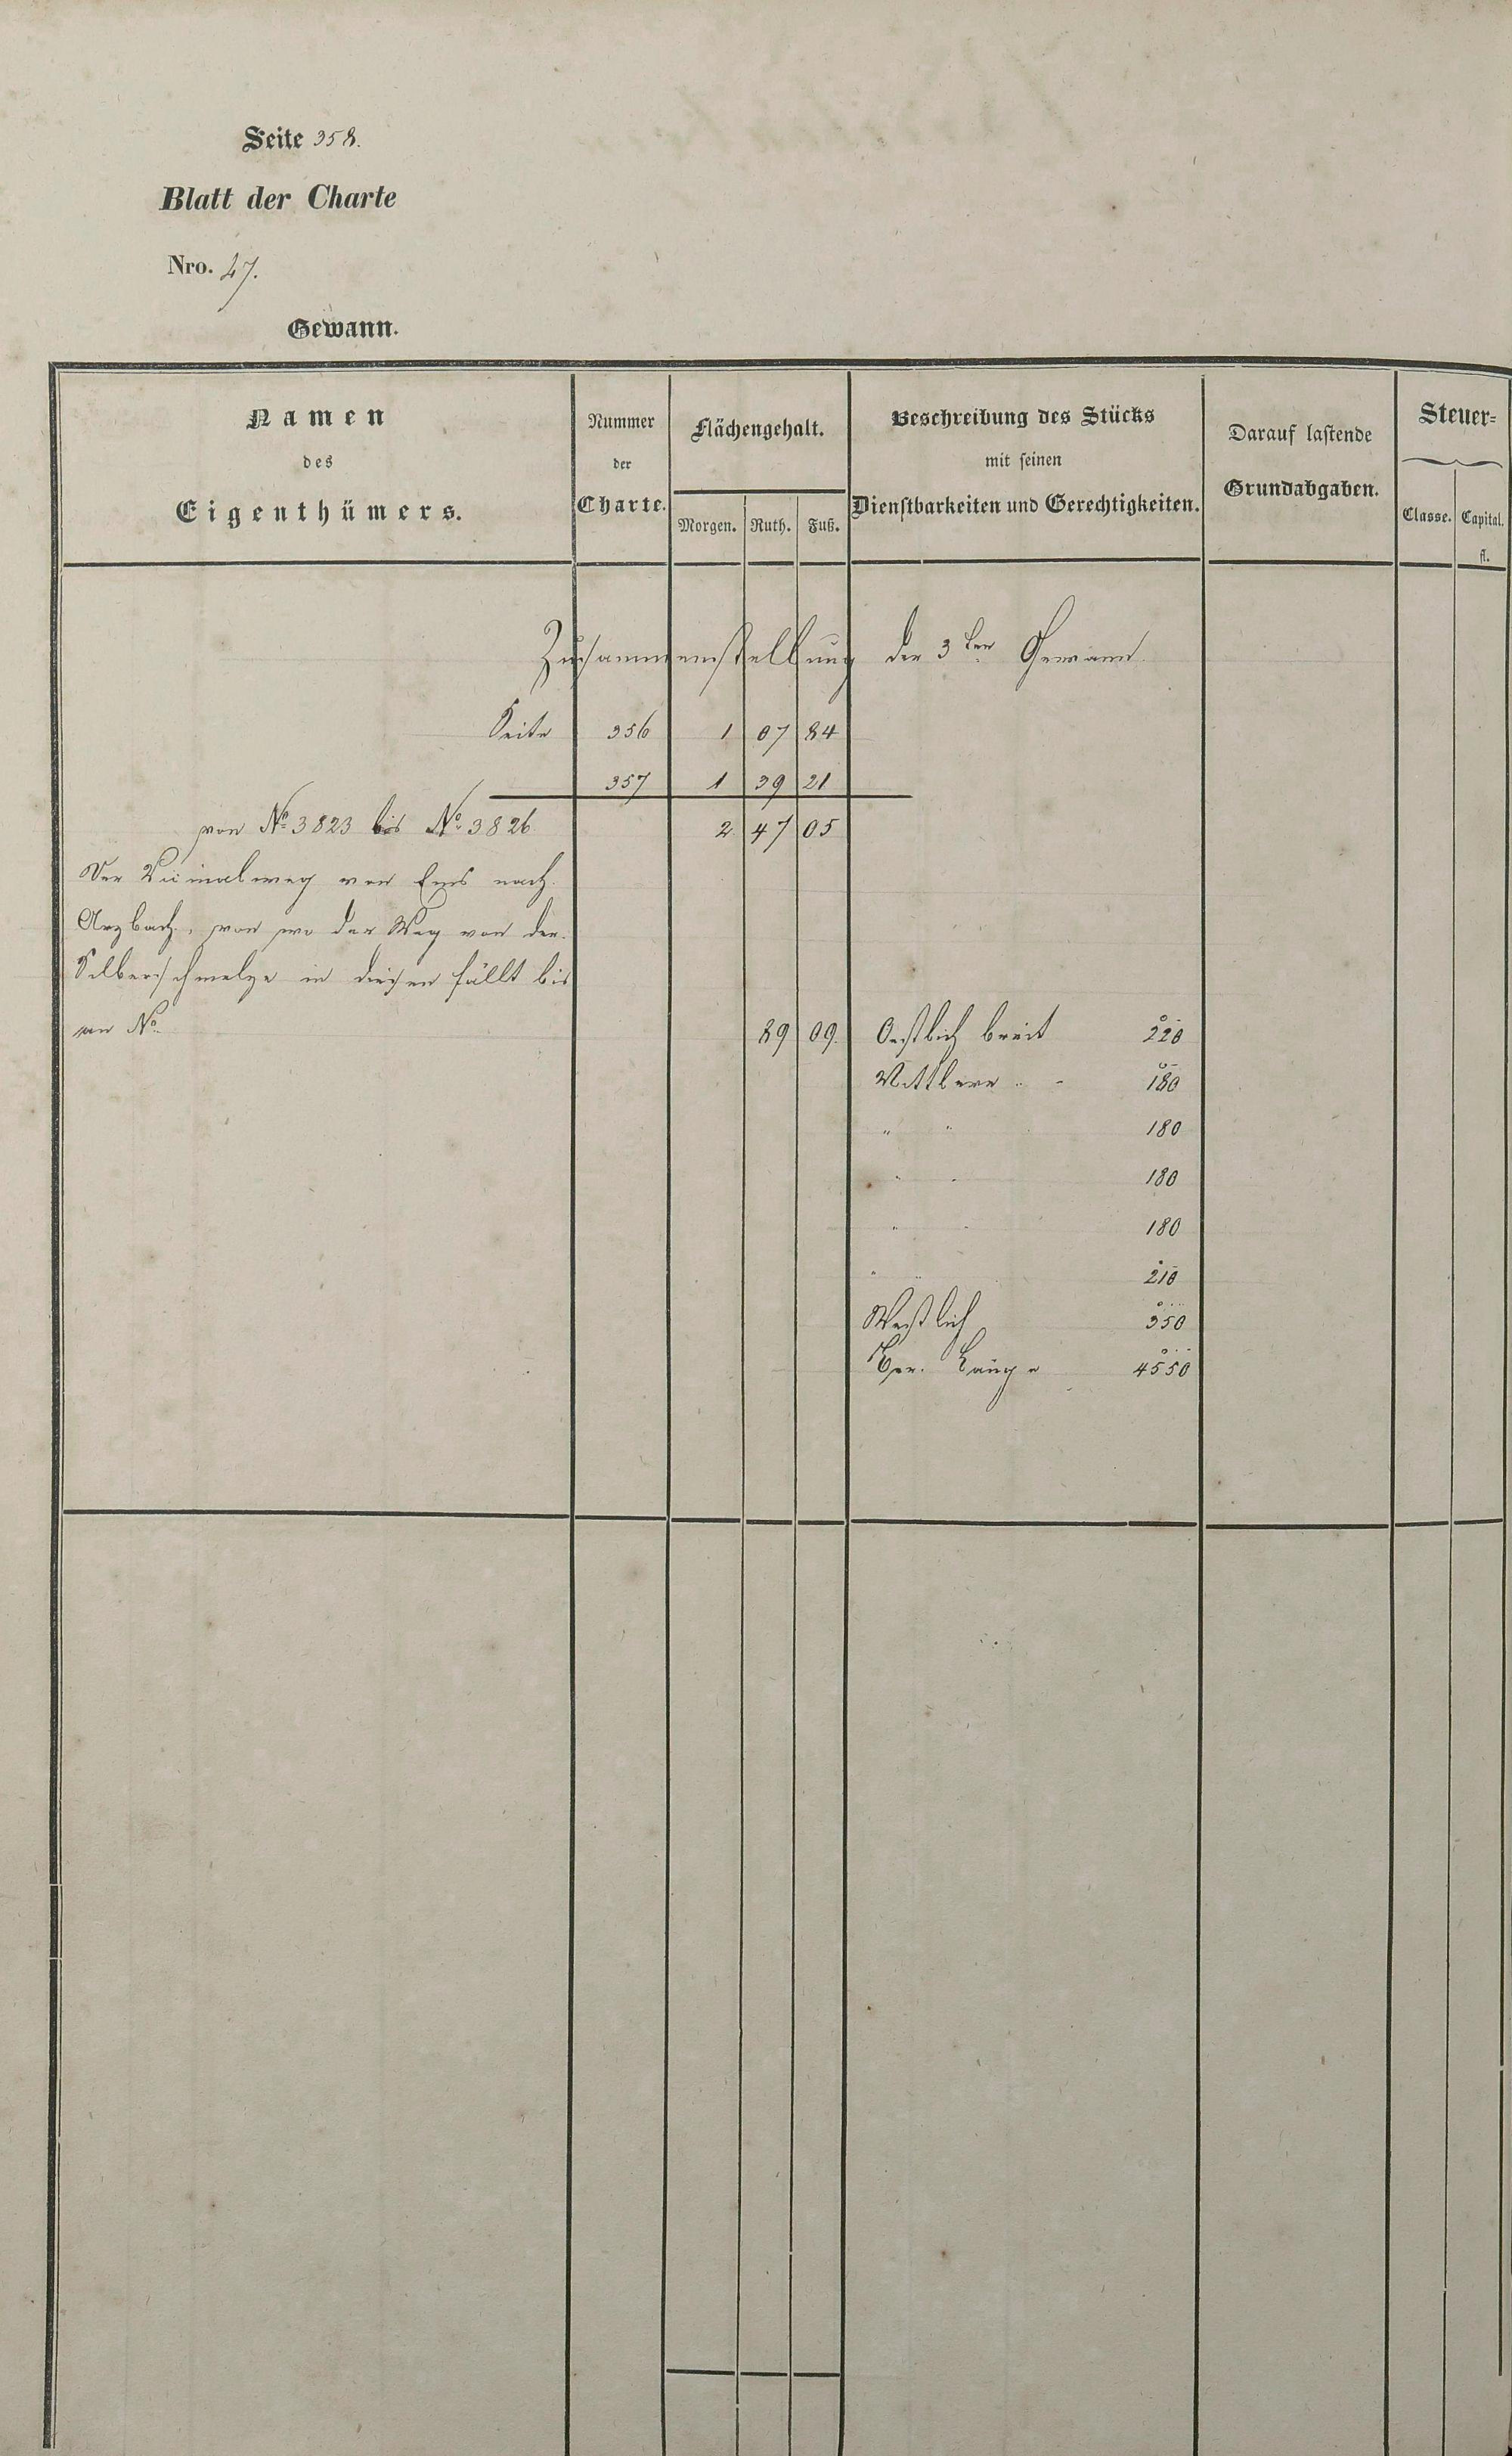 Seite 358.
Blatt der Charte
Nro. 47.
Gewann.
Namen
des
Eigenthümers.
Nummer
der
Charte.
Flächengehalt.
Morgen. Ruth. Fuß.
Beschreibung des Stücks
mit seinen
Dienstbarkeiten und Gerechtigkeiten.
Darauf lastende
Grundabgaben.
Steuer=
Classe. Capital.
fl.
Zusammenstellung der 3ten Gewann.
Seite 356 1 07 84
357 1 39 21
von No 3823 bis No 3826 2 47 05
Der Vicinalweg von Ems nach
Arzbach, von wo der Weg von der
Silberschmelze in diesen fällt bis
an No. 89 09. Oestlich breit 220
Mittlere " - 180
" " 180
" " 180
" " 180
" " 210
Westlich 350
Ger. Länge 4550